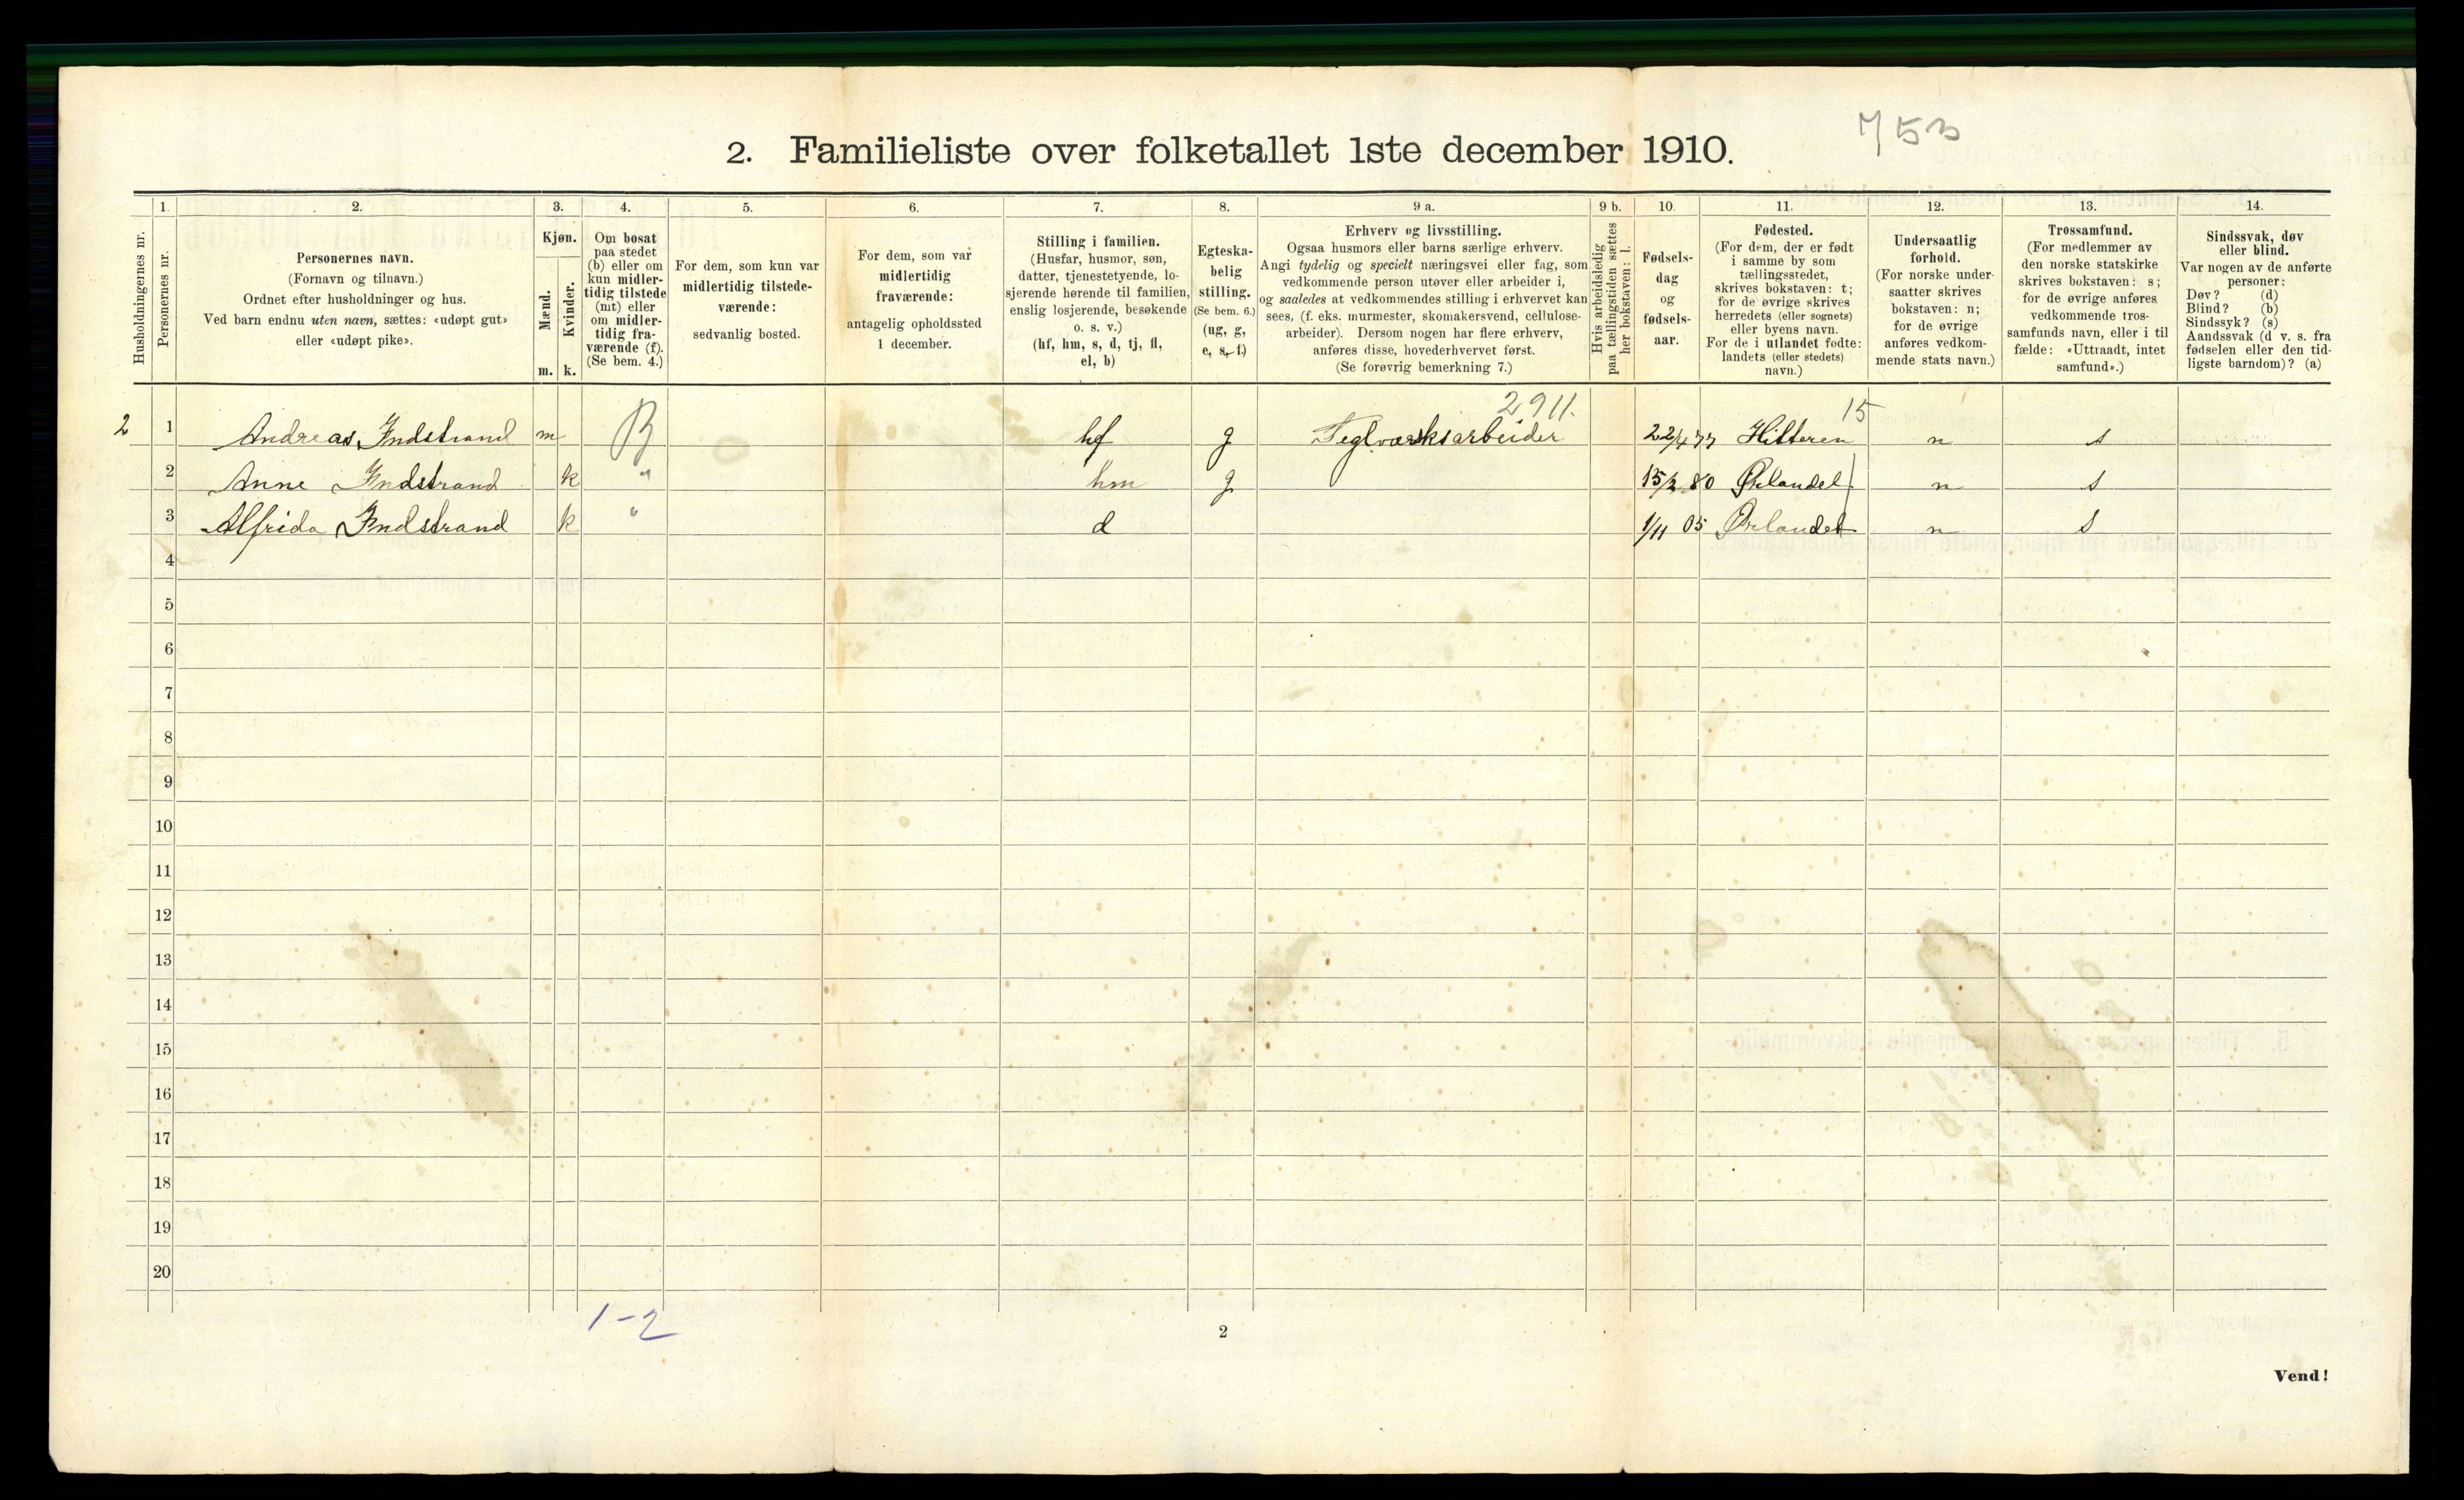 753
2. Familieliste over folketallet 1ste december 1910.
Husholdningernes nr.
1.
Personernes nr.
2.
Personernes navn.
(Fornavn og tilnavn.)
Ordnet efter husholdninger og hus.
Ved barn endnu uten navn, sættes: «udøpt gut»
eller «udøpt pike».
3.
Kjøn.
Mænd.
Kvinder.
m. k.
4.
Om bosat
paa stedet
(b) eller om
kun midler-
tidig tilstede
(mt) eller
om midler-
tidig fra-
værende (f).
(Se bem. 4.)
5.
For dem, som kun var
midlertidig tilstede-
værende:
sedvanlig bosted.
6.
For dem, som var
midlertidig
fraværende:
antagelig opholdssted
1 december.
7.
Stilling i familien.
(Husfar, husmor, søn,
datter, tjenestetyende, lo-
sjerende hørende til familien,
enslig losjerende, besøkende
o. s. v.)
(hf, hm, s, d, tj, fl,
el, b)
8.
Egteska-
belig
stilling.
(Se bem. 6.)
(ug, g,
e, s, f)
9 a.
Erhverv og livsstilling.
Ogsaa husmors eller barns særlige erhverv.
Angi tydelig og specielt næringsvei eller fag, som
vedkommende person utøver eller arbeider i,
og saaledes at vedkommendes stilling i erhvervet kan
sees, (f. eks. murmester, skomakersvend, cellulose-
arbeider). Dersom nogen har flere erhverv,
anføres disse, hovederhvervet først.
(Se forøvrig bemerkning 7.)
9 b.
Hvis arbeidsledig
paa tællingstiden sættes
her bokstaven: l.
10.
Fødsels-
dag
og
fødsels-
aar.
11.
Fødested.
(For dem, der er født
i samme by som
tællingsstedet,
skrives bokstaven: t;
for de øvrige skrives
herredets (eller sognets)
eller byens navn.
For de i utlandet fødte:
landets (eller stedets)
navn.)
12.
Undersaatlig
forhold.
(For norske under-
saatter skrives
bokstaven: n;
for de øvrige
anføres vedkom-
mende stats navn.)
13.
Trossamfund.
(For medlemmer av
den norske statskirke
skrives bokstaven: s;
for de øvrige anføres
vedkommende tros-
samfunds navn, eller i til
fælde: «Uttraadt, intet
samfund».)
14.
Sindssvak, døv
eller blind.
Var nogen av de anførte
personer:
Døv? (d)
Blind? (b)
Sindssyk? (s)
Aandssvak (d v. s. fra
fødselen eller den tid-
ligste barndom)? (a)
2911. 15
2 1 Andreas Indstrand m B hf g Teglværksarbeider 22/4 77 Hitteren n s
2 Anne Indstrand k " hm g 15/2 80 Ørlandet n s
3 Alfrida Indstrand k " d 1/11 05 Ørlandet n s
4
5
6
7
8
9
10
11
12
13
14
15
16
17
18
19
20
1-2
2
Vend!